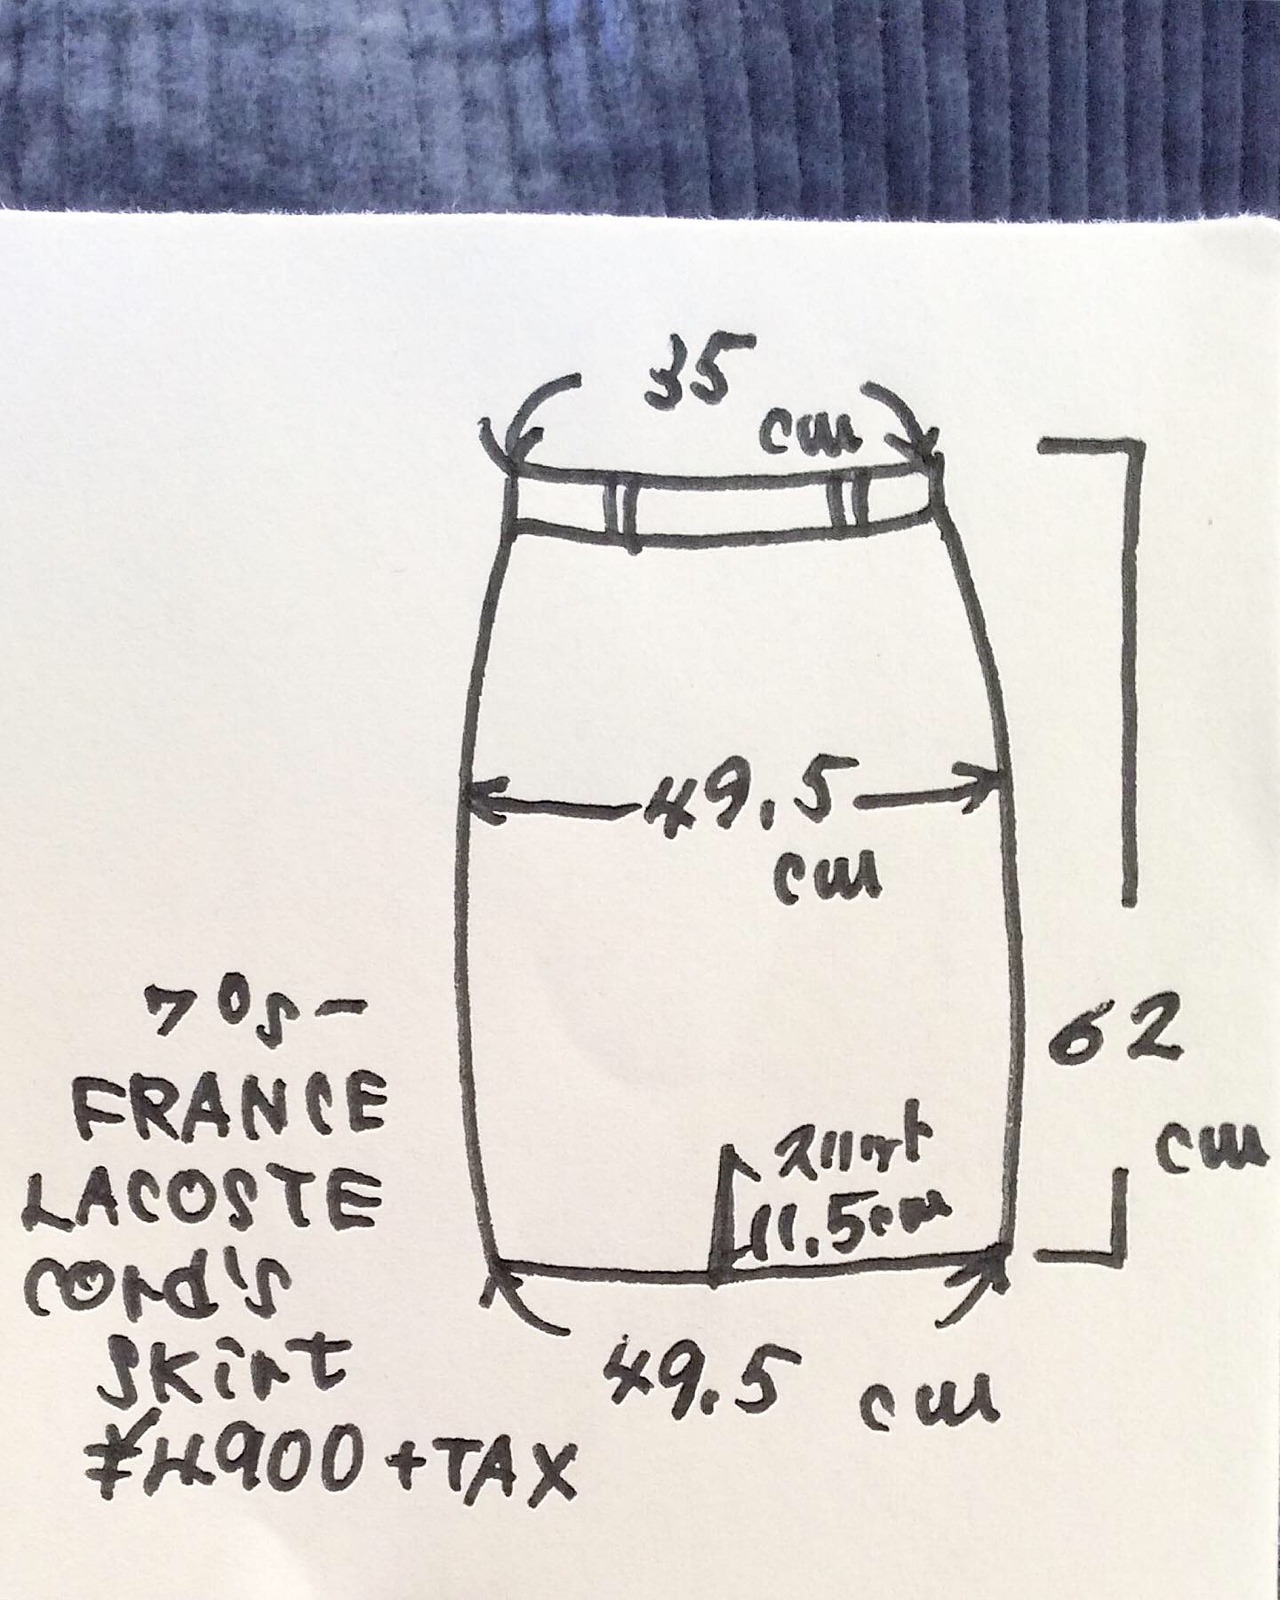 35
cm
49.5
cm
70s-
FRANCE
LACOSTE
cord's
skirt
¥4900+TAX
62
cm
11.5cm
49.5 cm